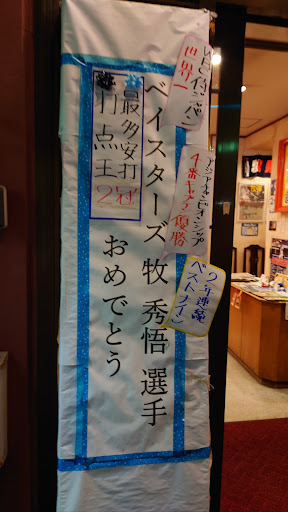 WBC侍ジャパン
世界一
アジアチャンピオンシップ
4番キャプテン優勝
2年連続
ベストナイン
ベイスターズ 牧 秀悟 選手
最多安打
打点王
2冠
おめでとう